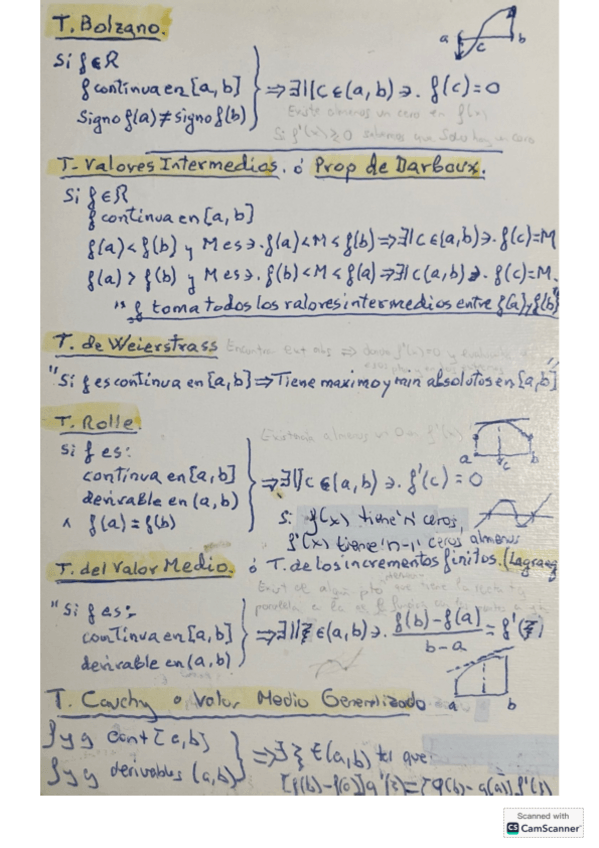 T. Bolzano.
Si f∈ℝ
f continua en [a,b]
Signo f(a) ≠ signo f(b)
⇒∃|| c∈(a,b) ∋. f(c)=0
Existe almenos un cero en f(x)
Si f'(x)≷0 sabemos que solo hay un cero
a c b
T. Valores Intermedios. ó Prop de Darboux.
Si f∈ℝ
f continua en [a,b]
f(a)<f(b) y M es ∋. f(a)<M<f(b) ⇒∃| c∈(a,b) ∋. f(c)=M
f(a)>f(b) y M es ∋. f(b)<M<f(a) ⇒∃| c(a,b) ∋. f(c)=M.
"f toma todos los valores intermedios entre f(a) y f(b)"
T. de Weierstrass
"Si f es continua en [a,b] ⇒ Tiene maximo y min absolutos en [a,b]"
T. Rolle.
Si f es:
continua en [a,b]
derivable en (a,b)
∧ f(a)=f(b)
⇒∃|| c∈(a,b) ∋. f'(c)=0
a c b
Si f(x) tiene 'n' ceros,
f'(x) tiene 'n-1' ceros almenos
T. del Valor Medio. ó T. de los incrementos finitos. (Lagrang
"Si f es:
continua en [a,b]
derivable en (a,b)
⇒∃|| ξ∈(a,b) ∋. f(b)-f(a) / b-a = f'(ξ)
a b
T. Cauchy o Valor Medio Generalizado
f y g cont [a,b]
f y g derivables (a,b)
⇒∃ ξ∈(a,b) tal que:
[f(b)-f(a)]g'(ξ)=[g(b)-g(a)]f'(ξ)
Scanned with
CS CamScanner